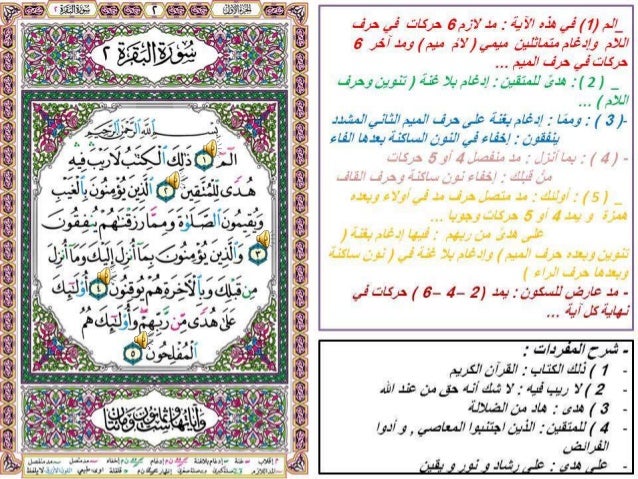 الجزء الأول
٢
سورة البقرة ٢
سورة البقرة ٢
بسم ٱلله ٱلرحمن ٱلرحيم
الٓمٓ ١ ذَٰلِكَ ٱلْكِتَٰبُ لَا رَيْبَ فِيهِ
هُدًى لِّلْمُتَّقِينَ ٢ ٱلَّذِينَ يُؤْمِنُونَ بِٱلْغَيْبِ
وَيُقِيمُونَ ٱلصَّلَوٰةَ وَمِمَّا رَزَقْنَٰهُمْ يُنفِقُونَ
٣ وَٱلَّذِينَ يُؤْمِنُونَ بِمَآ أُنزِلَ إِلَيْكَ وَمَآ أُنزِلَ
مِن قَبْلِكَ وَبِٱلْءَاخِرَةِ هُمْ يُوقِنُونَ ٤ أُو۟لَٰٓئِكَ
عَلَىٰ هُدًى مِّن رَّبِّهِمْ وَأُو۟لَٰٓئِكَ هُمُ
ٱلْمُفْلِحُونَ ٥
_الم (1) في هذه الآية : مد لازم 6 حركات في حرف
اللام وإدغام متماثلين ميمي ( لامْ ميم ) ومد آخر 6
حركات في حرف الميم ...
_ ( 2 ) : هدىً للمتقين : إدغام بلا غنة ( تنوين وحرف
اللام ) ...
-( 3 ) : وممّا : إدغام بغنة على حرف الميم الثاني المشدد
ينفقون : إخفاء في النون الساكنة بعدها الفاء
- ( 4 ) : بما أنزل : مد منفصل 4 أو 5 حركات
منْ قبلك : إخفاء نون ساكنة وحرف القاف
_ ( 5 ) : أولئك : مد متصل حرف مد في أولاء وبعده
همزة و يمد 4 أو 5 حركات وجوبا ...
على هدىً من ربهم : فيها إدغام بغنة (
تنوين وبعده حرف الميم ) وإدغام بلا غنة في ( نون ساكنة
وبعدها حرف الراء )
- مد عارض للسكون : يمد ( 2 – 4 – 6 ) حركات في
نهاية كل آية ...
- شرح المفردات :
- 1 ) ذلك الكتاب : القرآن الكريم
- 2 ) لا ريب فيه : لا شك أنه حق من عند الله
- 3 ) هدى : هاد من الضلالة
- 4 ) للمتقين : الذين اجتنبوا المعاصي , و أدوا
الفرائض
- على هدي : على رشاد و نور و يقين